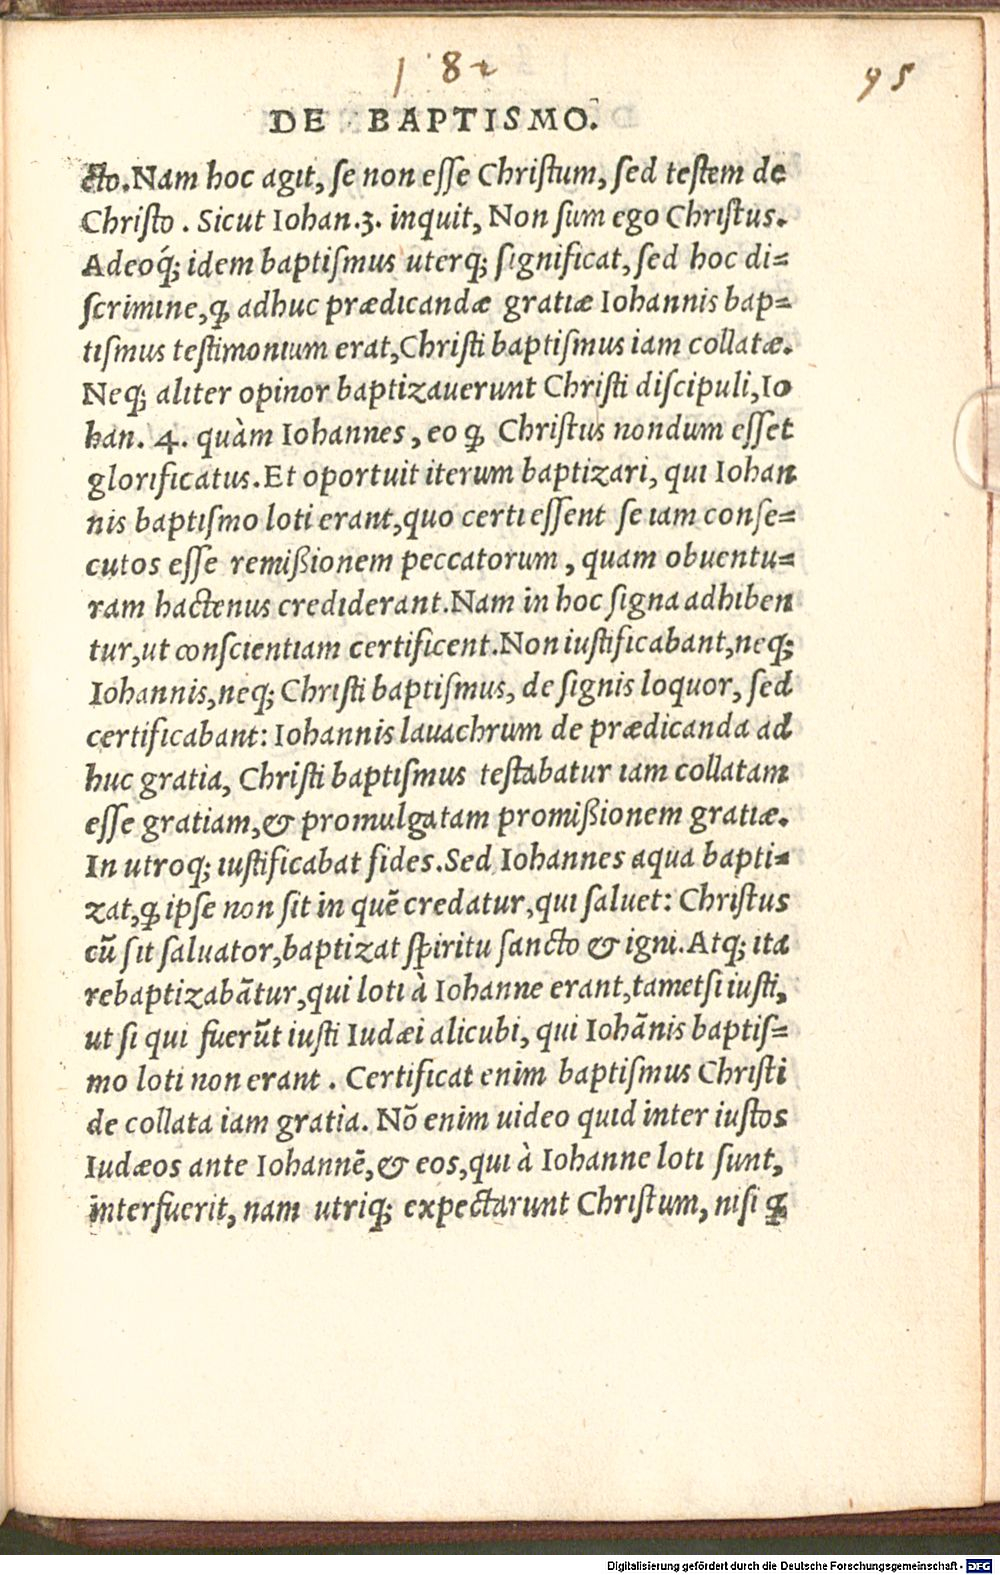 182
95
DE BAPTISMO.
cto. Nam hoc agit, se non esse Christum, sed testem de
Christo. Sicut Iohan. 3. inquit, Non sum ego Christus.
Adeoq́; idem baptismus uterq; significat, sed hoc di=
scrimine, ꝙ adhuc prædicandæ gratiæ Iohannis bap=
tismus testimonium erat, Christi baptismus iam collatæ.
Neq; aliter opinor baptizauerunt Christi discipuli, Io
han. 4. quàm Iohannes, eo ꝙ Christus nondum esset
glorificatus. Et oportuit iterum baptizari, qui Iohan
nis baptismo loti erant, quo certi essent se iam conse=
cutos esse remißionem peccatorum, quam obuentu=
ram hactenus crediderant. Nam in hoc signa adhiben
tur, ut conscientiam certificent. Non iustificabant, neq;
Iohannis, neq; Christi baptismus, de signis loquor, sed
certificabant: Iohannis lauachrum de prædicanda ad
huc gratia, Christi baptismus testabatur iam collatam
esse gratiam, & promulgatam promißionem gratiæ.
In utroq; iustificabat fides. Sed Iohannes aqua bapti=
zat, ꝙ ipse non sit in quē credatur, qui saluet: Christus
cū sit saluator, baptizat spiritu sancto & igni. Atq; ita
rebaptizabãtur, qui loti à Iohanne erant, tametsi iusti,
ut si qui fuerūt iusti Iudæi alicubi, qui Iohãnis baptis=
mo loti non erant. Certificat enim baptismus Christi
de collata iam gratia. Nõ enim uideo quid inter iustos
Iudæos ante Iohannē, & eos, qui à Iohanne loti sunt,
interfuerit, nam utriq; expectarunt Christum, nisi ꝙ
Digitalisierung gefördert durch die Deutsche Forschungsgemeinschaft - DFG